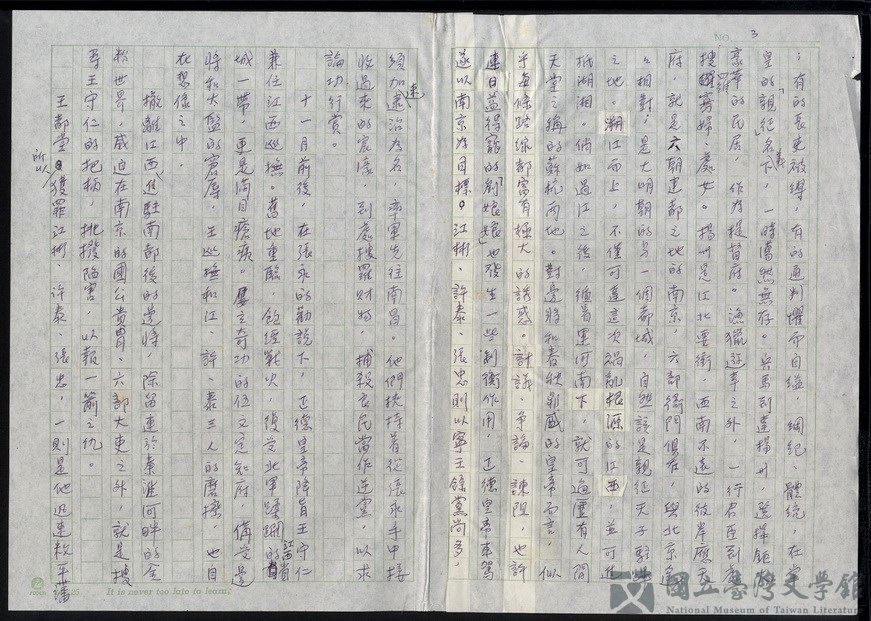 NO. 3
；有的長吏被縛，有的通判懼而自縊，綱紀、體統，在當
皇的「親征」名下，一時蕩然無存。兵馬到達揚州，選擇鉅
豪華的民居，作為提督府。漁獵遊幸之外，一行君臣到處
搜羅寡婦、處女。揚州是江北要衝，西南不遠的彼岸應天
府，就是六朝建都之地的南京，六部衙門俱在，與北京
相對，是大明朝的另一個都城，自然該是親征天子駐蹕
之地。溯江而上，不僅可達這次禍亂根源的江西，並可進
抵湖湘。倘如過江之後，循著運河南下，就可遍歷有人間
天堂之稱的蘇杭兩地。對邊將和春秋鼎盛的皇帝而言，似
乎每條路線都富有極大的誘惑。計議、爭論、諫阻，也許
連日益得寵的「劉娘娘」也發生一些制衡作用，正德皇帝車駕
遂以南京為目標。江彬、許泰、張忠則以寧王餘黨尚多，
須加速治為名，率軍先往南昌。他們挾持著從張永手中接
收過來的宸濠，到處搜羅財物，捕殺良民當作逆黨，以求
論功行賞。
十一月前後，在張永的勸說下，正德皇帝降旨王守仁
兼任江西巡撫。舊地重臨，飽經戰火，復受北軍蹂躪的江西省
城一帶，更是滿目瘡痍。屢立奇功的伍文定知府，備受邊
將和大監的窘辱，王巡撫和江、許、泰三人的磨擦，也自
在想像之中。
撤離江西，進駐南都後的邊將，除留連於秦淮河畔的金
粉世界，威迫在南京的國公貴胄、六部大吏之外，就是搜
尋王守仁的把柄，挑撥陷害，以報一箭之仇。
王都堂所以獲罪江彬、許泰、張忠，一則是他迅速敉平藩
It is never too late to learn!
國立臺灣文學館
National Museum of Taiwan Literature